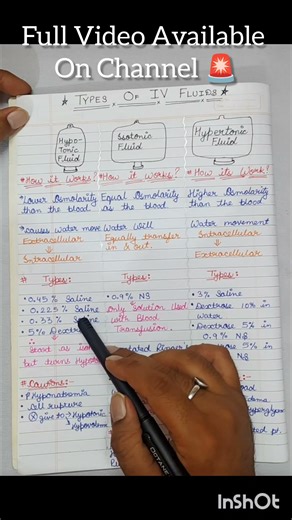 Full Video Available
On Channel 🚨
★ TYPES OF IV FLUIDS ★
Hypo-
Tonic
Fluid
Isotonic
Fluid
Hypertonic
Fluid
* How it Works?
* How it Works?
* How its Work!
Lower Osmolarity
than the blood
Equal Osmolarity
as the blood.
Higher Osmolarity
than the blood.
causes water move
Extracellular
↓
Intracellular
Water Will
Equally transfer
in & out.
Water movement
Intracellular
↓
Extracellular
# Types:
• 0.45% Saline
• 0.225% Saline
• 5% Dextro
∴ as iso
but turns Hypo
Types:
• 0.9% NS
Only Solution Used
with Blood
Transfusion.
Types:
• 3% Saline
• Dextrose 10% in
Water
• Dextrose 5% in
0.9% NS
5% in
# Cautions:-
• Hyponatremia
• Cell rupture
• ⓧ give to:→ Hypotonic
Hypovolem
pt.
OCTANE
InShOt